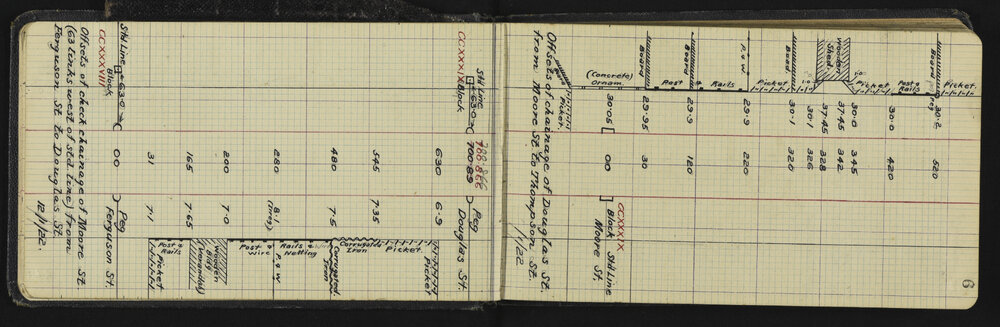 6
Picket.
Board
Post &
Rails
Picket
Wooden
Shed.
Board
Picket
P & W
Rails
Post &
Board
(Concrete)
Ornam.
Picket.
30.2
Peg
520
30.0
420
30.0
345
37.45
342
37.45
328
30.1
326
30.1
320
29.9
220
29.9
120
29.95
30
30.05
00
CCXXXIX
Block
Std Line
Moore St.
Offsets of chainage of Douglas St.
from Moore St to Thompson St.
1/1/22.
Std Line
63.0
CCXXXIX Block
788.866
700.89
Peg
Douglas St.
630
6.9
Picket
545
7.35
Picket.
Corrugated
Iron
480
7.5
Corrugated
Iron
280
8.1
Post &
Wire
Rails
Netting
P & W
200
7.0
165
7.65
Wooden
Bldg
31
7.1
Post &
Rails
Picket
00
Peg
Ferguson St.
Std Line
63.0
Block
CCXXXVIII
Offsets of check chainage of Moore St
(63 links west of std. line) from
Ferguson St to Douglas St.
12/1/22.